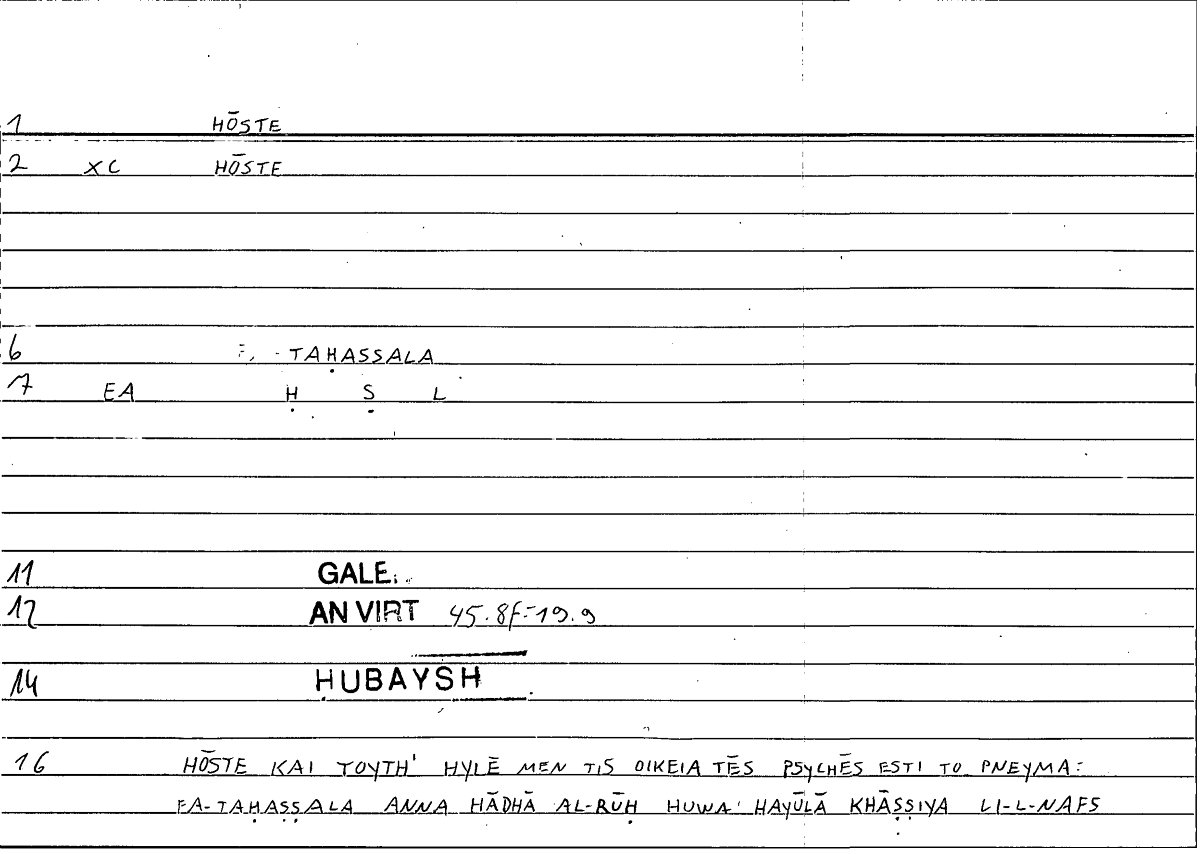 1 HŌSTE
2 XC HŌSTE
6 TAḤASSALA
7 EA Ḥ Ṣ L
11 GALE
12 AN VIRT 45.8f=19.9
14 ḤUBAYSH
16 HŌSTE KAI TOYTH' HYLĒ MEN TIS OIKEIA TĒS PSYCHĒS ESTI TO PNEYMA:
FA-TAḤAṢṢALA ANNA HĀDHĀ AL-RŪḤ HUWA HAYŪLĀ KHĀṢṢIYA LI-L-NAFS